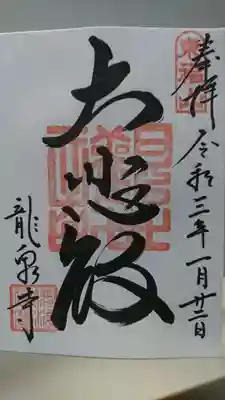 奉拝 令和三年一月廿二日
大悲殿
龍泉寺